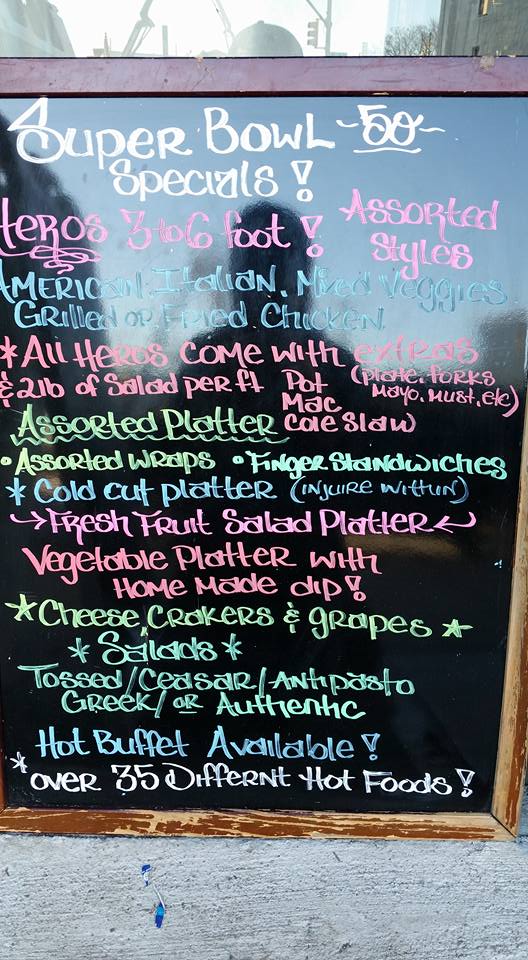 Super Bowl ~50~
Specials!
Heros 3 to 6 foot! Assorted Styles
American, Italian, Mixed Veggies
Grilled or Fried Chicken
*All Heros come with extras
& 2lb of Salad per ft Pot (plate, forks
Mac Mayo, Must, etc)
Assorted Platter Cole Slaw
•Assorted wraps •Finger Standwiches
*Cold cut platter (injuire within)
→Fresh Fruit Salad Platter←
Vegetable Platter with
Home Made dip!
*Cheese, Crakers & grapes*
*Salads*
Tossed/Ceasar/Antipasto
Greek/or Authentic
Hot Buffet Available!
*over 35 Differnt Hot Foods!